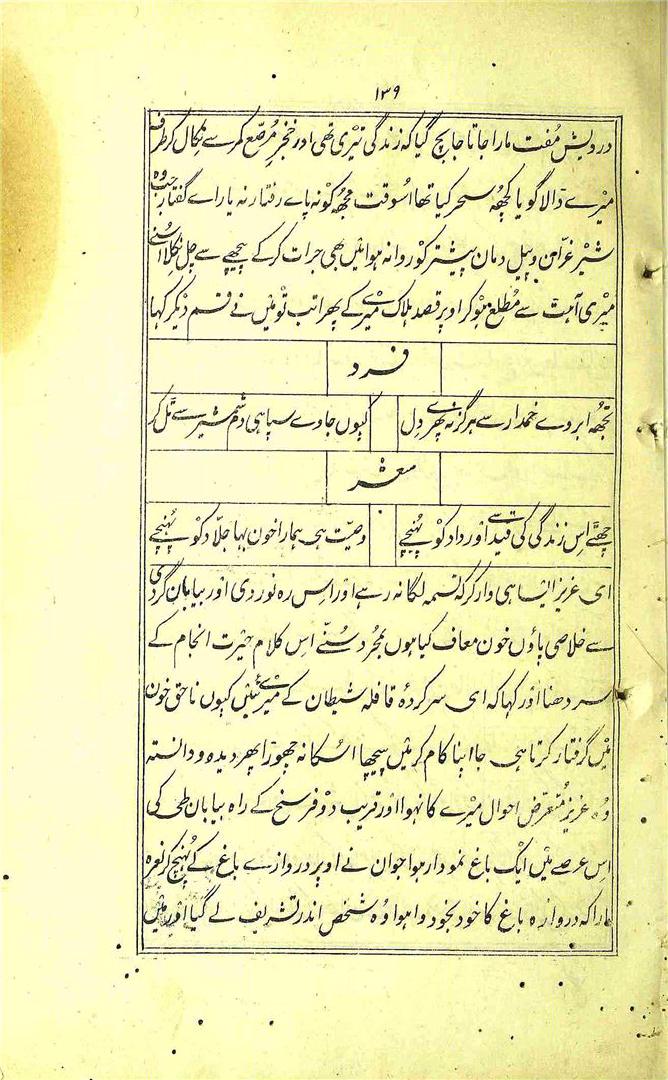 ۱۳۹
درویش مُفت مارا جاتا جا بچ گیا که زندگی تیری تھی اور خنجر مُرصّع کمر سے نکال کر طرف
میرے ڈالا گویا کچھُ سحر کیا تھا اُسوقت مجھُ کو نہ پاے رفتار نہ یاراے گفتار جب وہ
شیر غرّان و پیل دمان پیشتر کو روانہ ہوا میں بھی جرات کر کے پیچھے سے چل نکلا اُسنے
میری آہٹ سے مُطلع ہو کر اوپر قصد ہلاک میرے کے پھرا تب تو میں نے قسم دیکر کہا
فرد
تجھُ ابروے خمدار سے ہرگز نہ پھرے دل
کیوں جاوے سپاہی دم شمشیر سے ٹل کر
شعر
چھٹے اس زندگی کی قید سے اور داد کو پہُنچے
وصیّت ہی ہمارا خون بہا جلّاد کو پہُنچے
ای عزیز ایسا ہی وار کر کہ تسمہ لگا نہ رہے اور اس رہ نوردی اور بیابان گردی
سے خلاصی پاؤں خون معاف کیا ہوں بمجرد سُنّے اس کلام حیرت انجام کے
سر دھنا اور کہا کہ ای سرکردۂ قافلہ شیطان کے میرے تئیں کیوں ناحق خون
میں گرفتار کرتا ہی جا اپنا کام کر میں پیچھا اُسکا نہ چھوڑا پھر دیدہ و دانستہ
وُہ عزیز مُتعرض احوال میرے کا نہوا اور قریب دو فرسنح کے راہ بیابان طی کی
اس عرصے میں ایک باغ نمودار ہوا جوان نے اوپر دروازے باغ کے پہُنچ کر نعرہ
مارا کہ دروازہ باغ کا خود بخود وا ہوا وُہ شخص اندر تشریف لے گیا اور میں